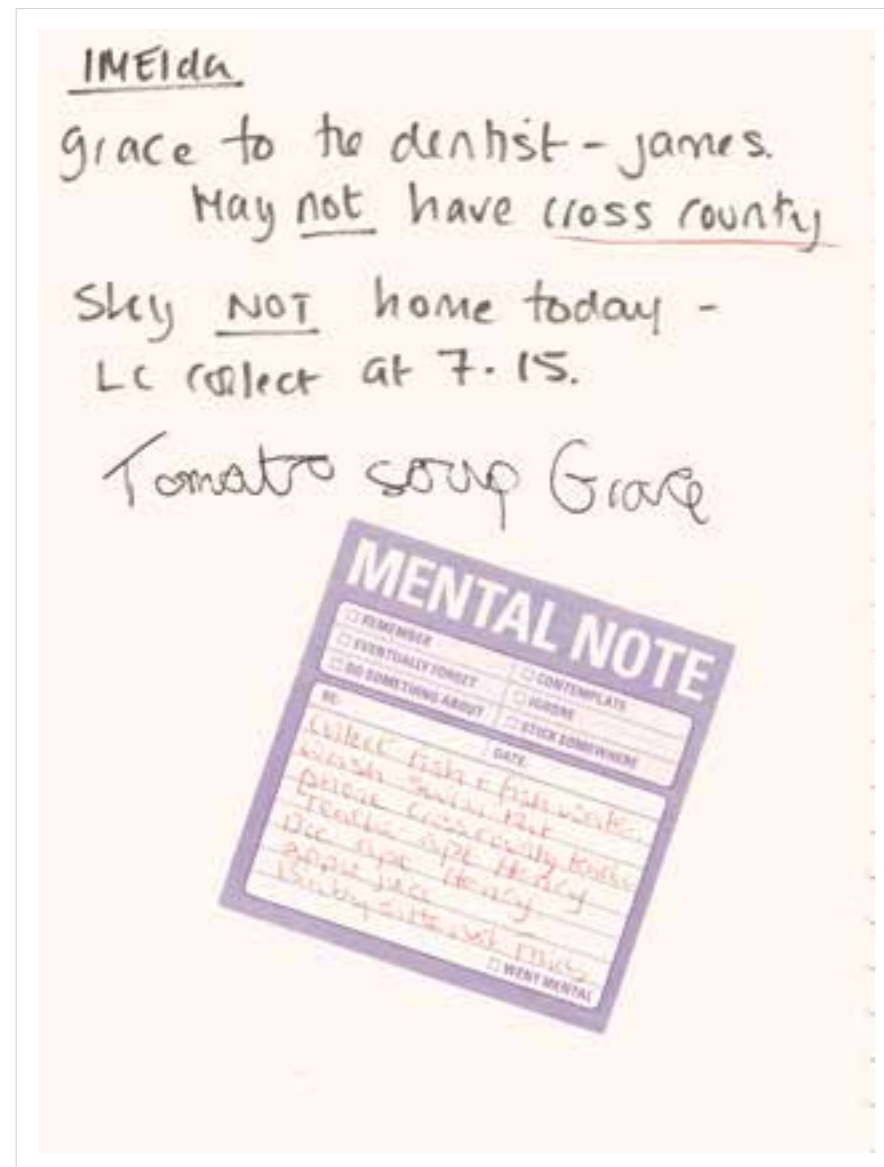 IMElda
grace to the dentist - james.
May not have cross county
Sky NOT home today -
LC collect at 7.15.
Tomato soup Grace
MENTAL NOTE
REMEMBER
EVENTUALLY FORGET
DO SOMETHING ABOUT
CONTEMPLATE
IGNORE
STICK SOMEWHERE
RE:
DATE:
Collect fish + fish water
Wash Swim kit
phone cross county
Teacher apt Henry
Doc apt Henry
apple juice
WENT MENTAL